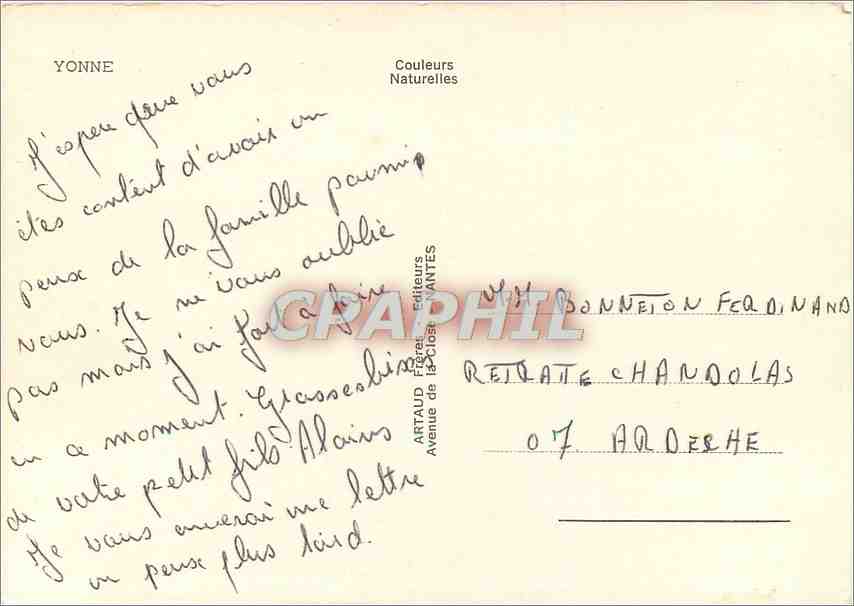 YONNE
Couleurs
Naturelles
J'espere que vous
êtes contént d'avoir un
peux de la famille parmis
vous. Je ne vous oublie
pas mais j'ai fort à faire
en ce moment. Grasses bises
de votre petit fils Alains
Je vous enverai une lettre
un peux plus tard.
ARTAUD Frères Editeurs
Avenue de la Close NANTES
CPAPHIL
BONNETON FERDINAND
RETRATE CHANDOLAS
07 ARDECHE